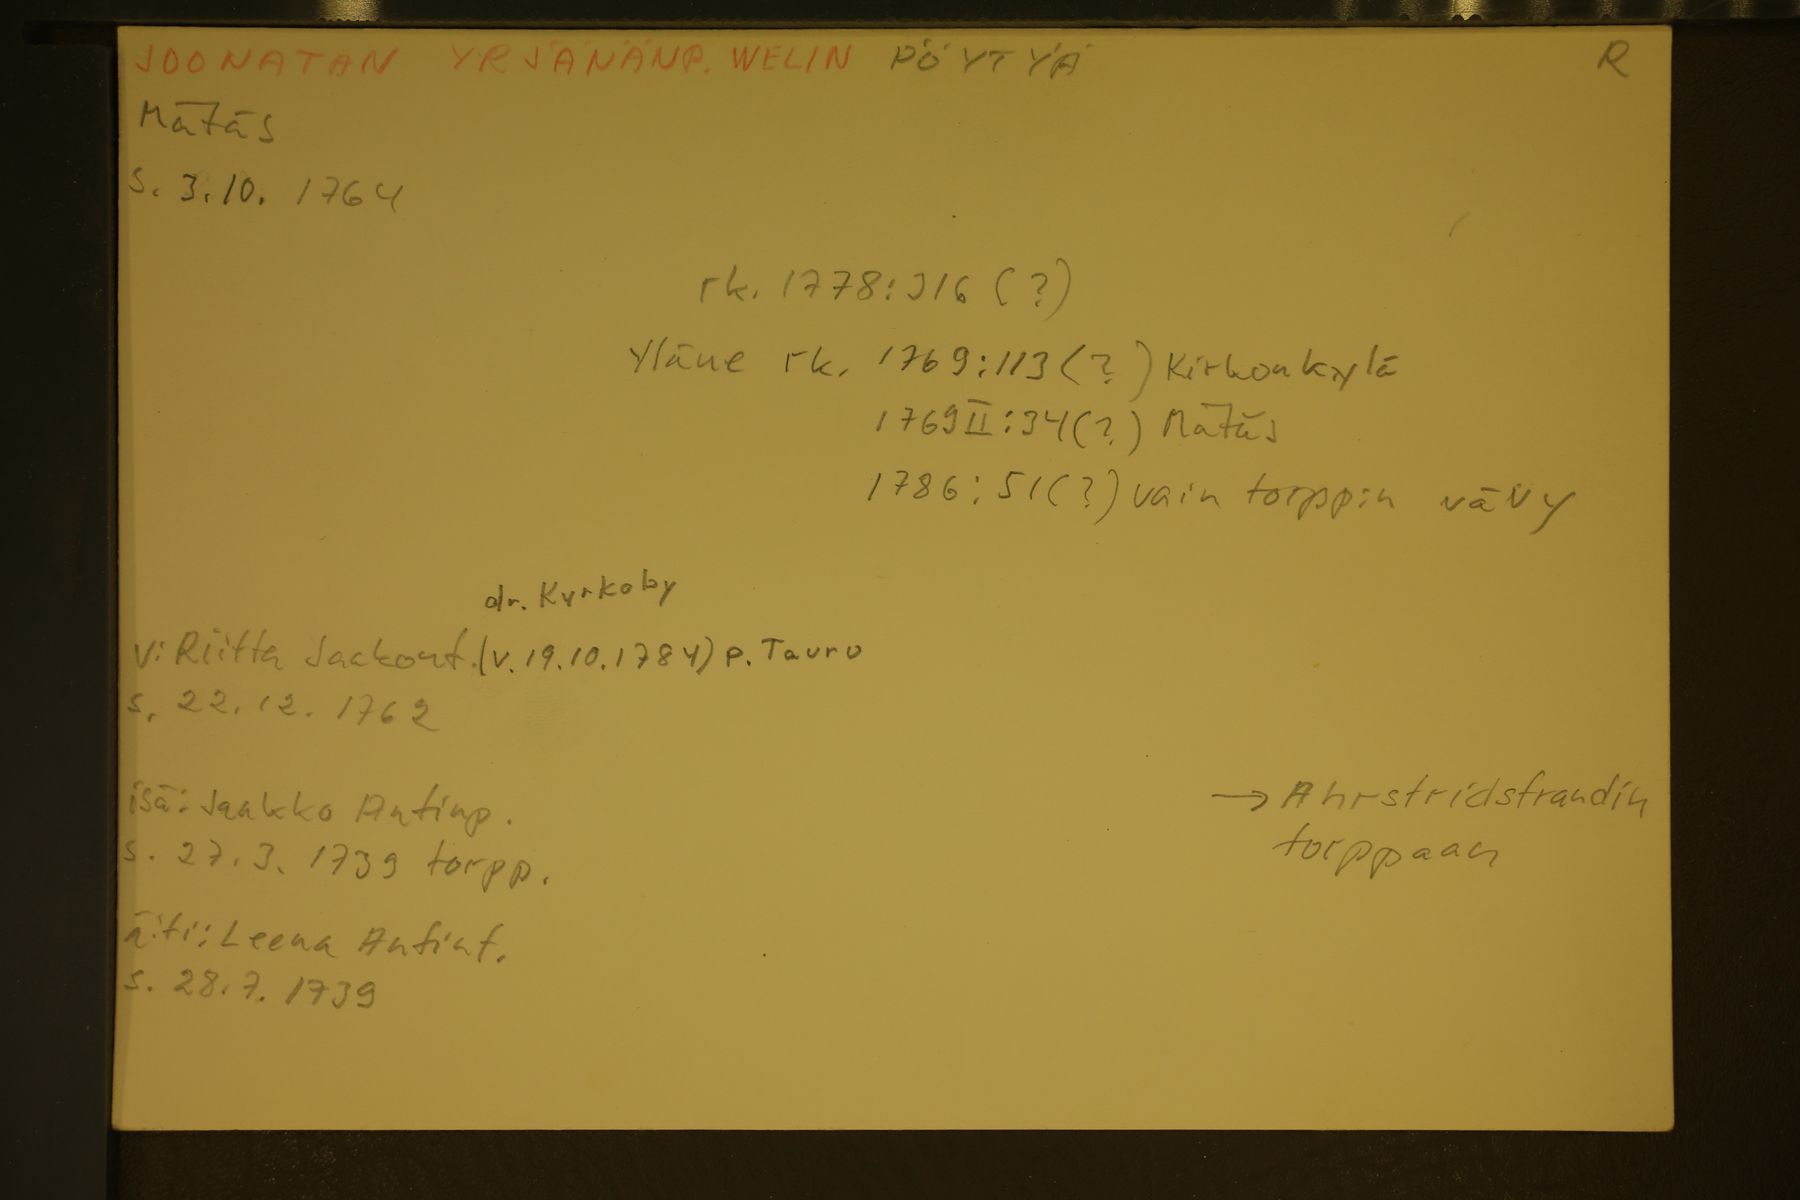 JOONATAN YRJÄNÄNP. WELIN PÖYTYÄ R
Mätäs
s. 3.10. 1764
rk. 1778:316 (?)
Yläne rk. 1769:113 (?) Kirkonkylä
1769 II:34 (?) Mätäs
1786:51 (?) vain torppin vävy
dr. Kyrkoby
v: Riitta Jaakont. (v. 19.10.1784) p. Tauru
s. 22.12. 1762
isä: Jaakko Antinp.
s. 27.3. 1739 torpp.
→ Ahrstridstrandin
torppaan
äiti: Leena Antint.
s. 28.7. 1739